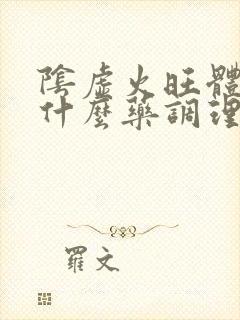 陰虛火旺體
什麼藥調理
羅文